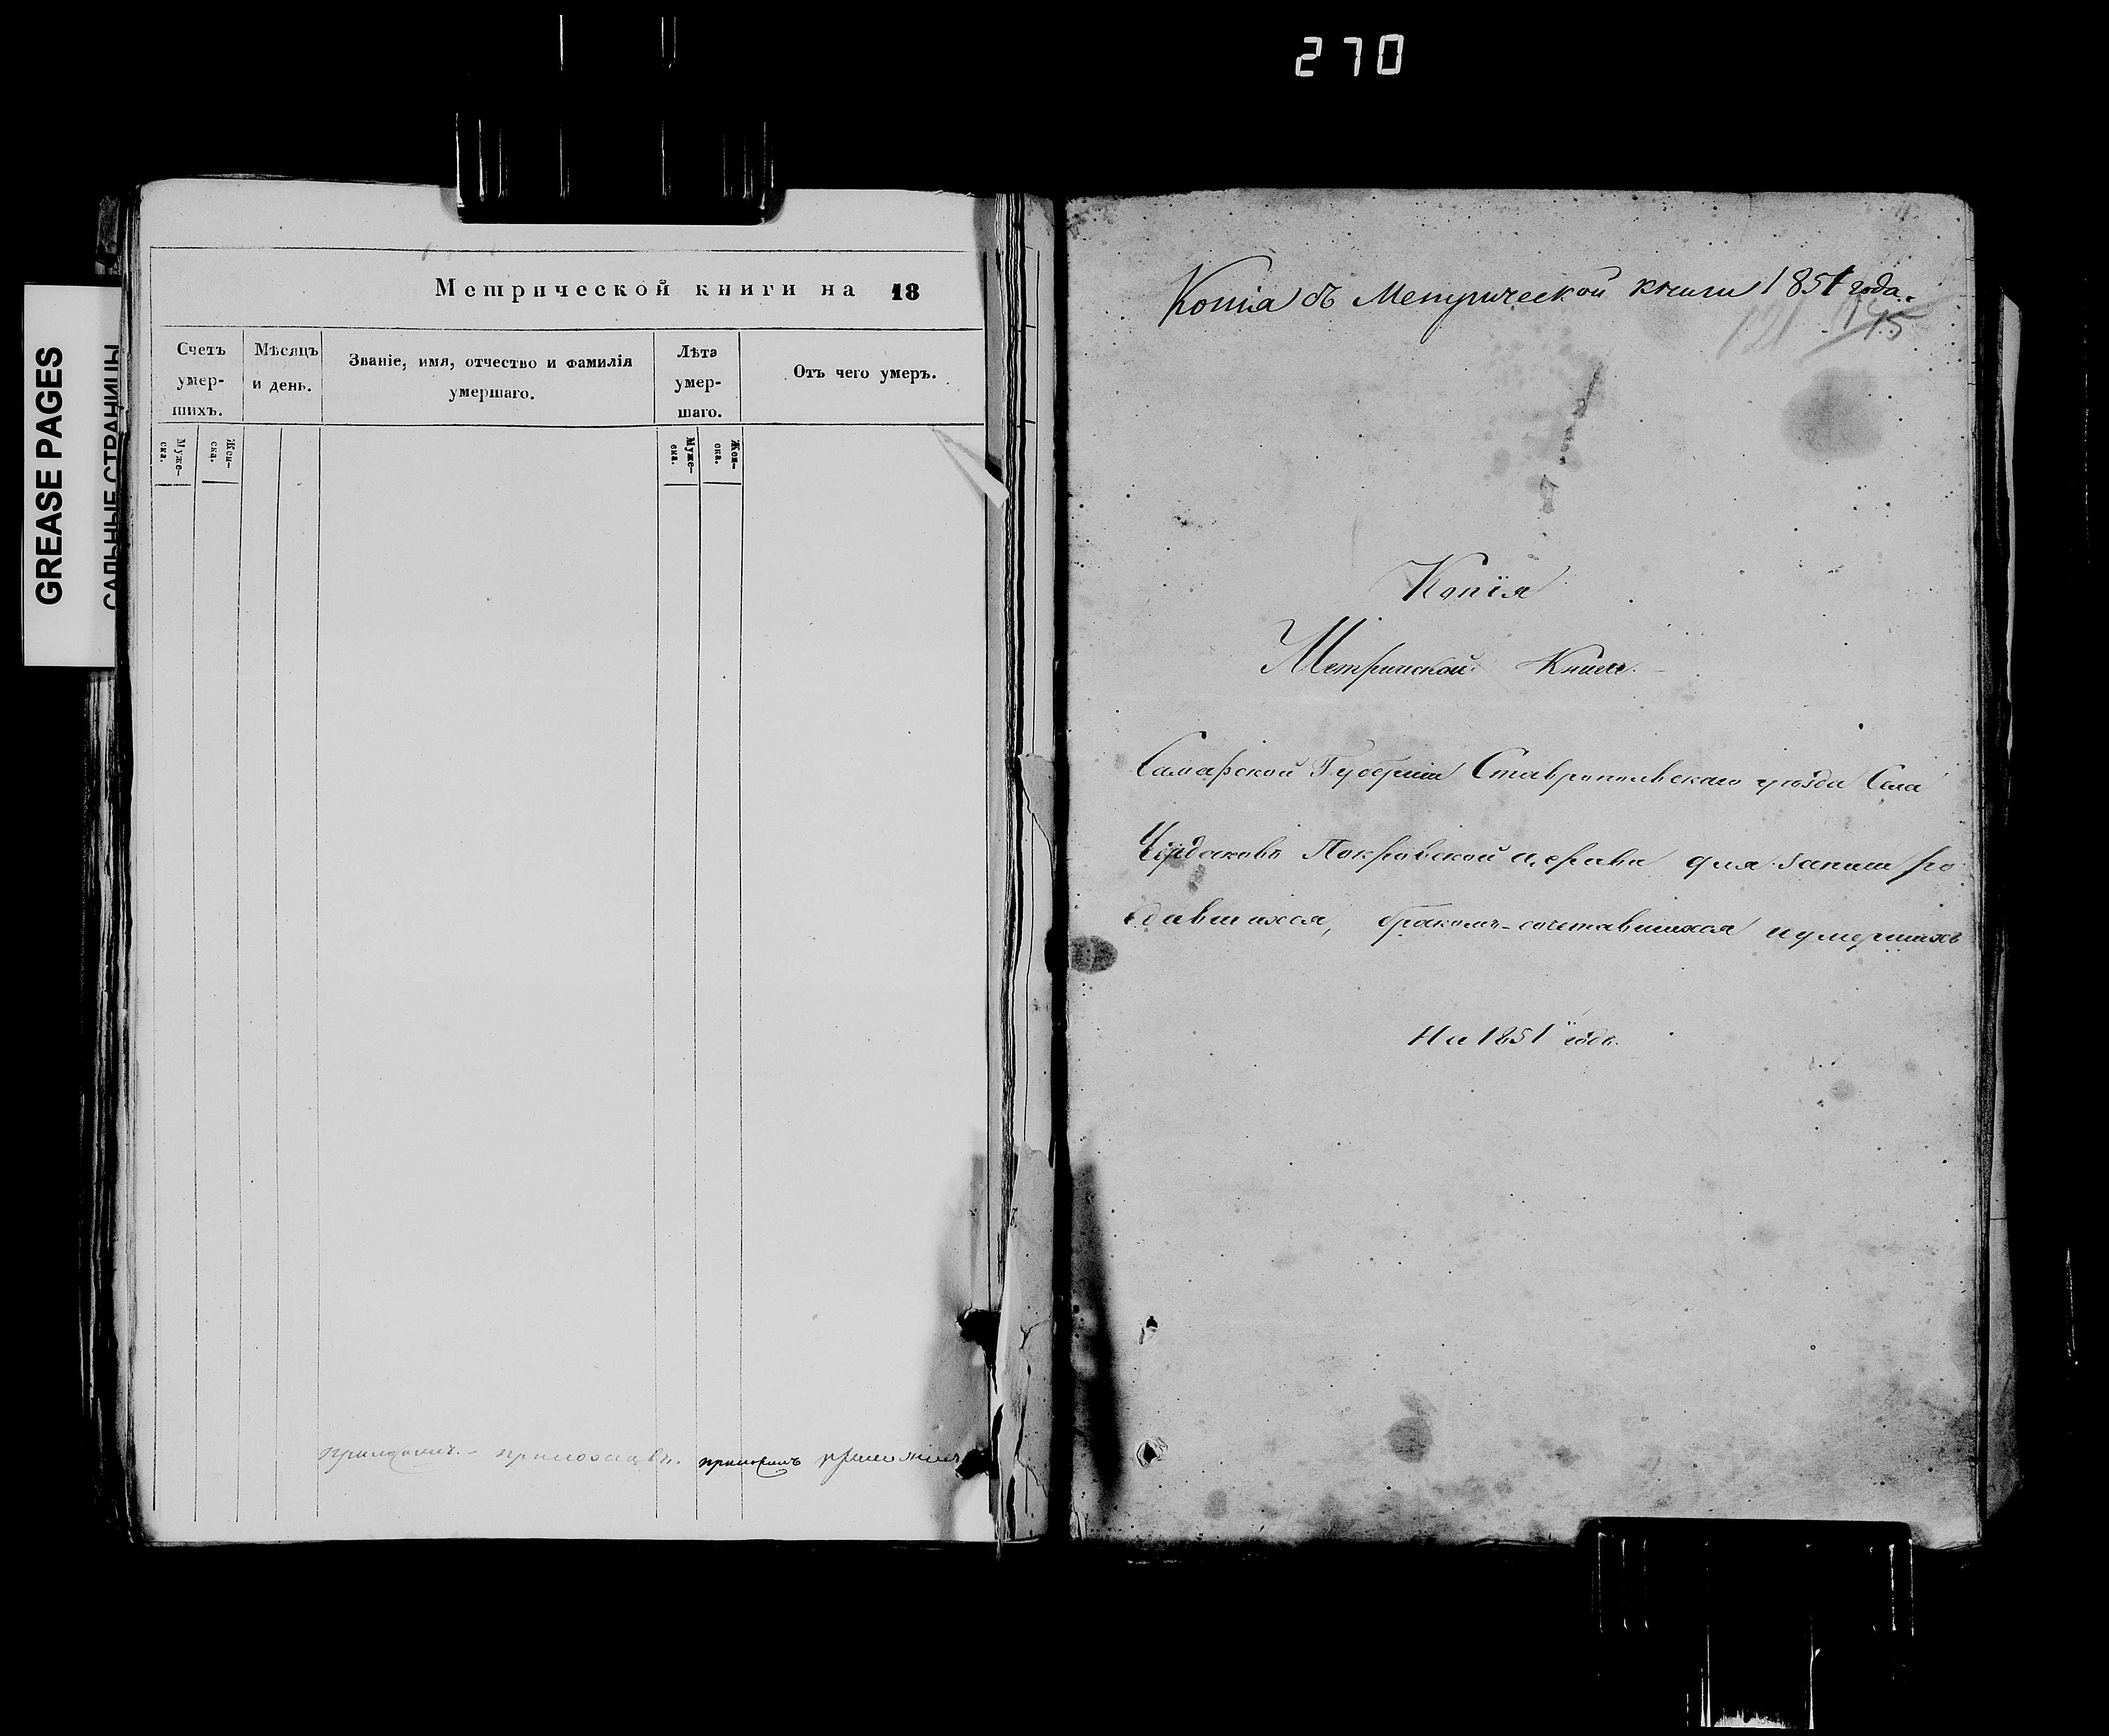 270
GREASE PAGES
САЛЬНЫЕ СТРАНИЦЫ
Метрической книги на 18
Счетъ умер-шихъ.
Мѣсяцъ и день.
Званіе, имя, отчество и фамилія умершаго.
Лѣта умер-шаго.
Отъ чего умеръ.
Муже-ска.
Жен-ска.
Муже-ска.
Жен-ска.
Копія съ Метрической книги 1851 года.
121 145
Копія
Метрической Книги.
Самарской Губерніи Ставропольскаго уѣзда Села
Чердаковъ Покровской церкви для записи ро
дившихся, бракомъ-сочетавшихся и умершихъ
На 1851 годъ.